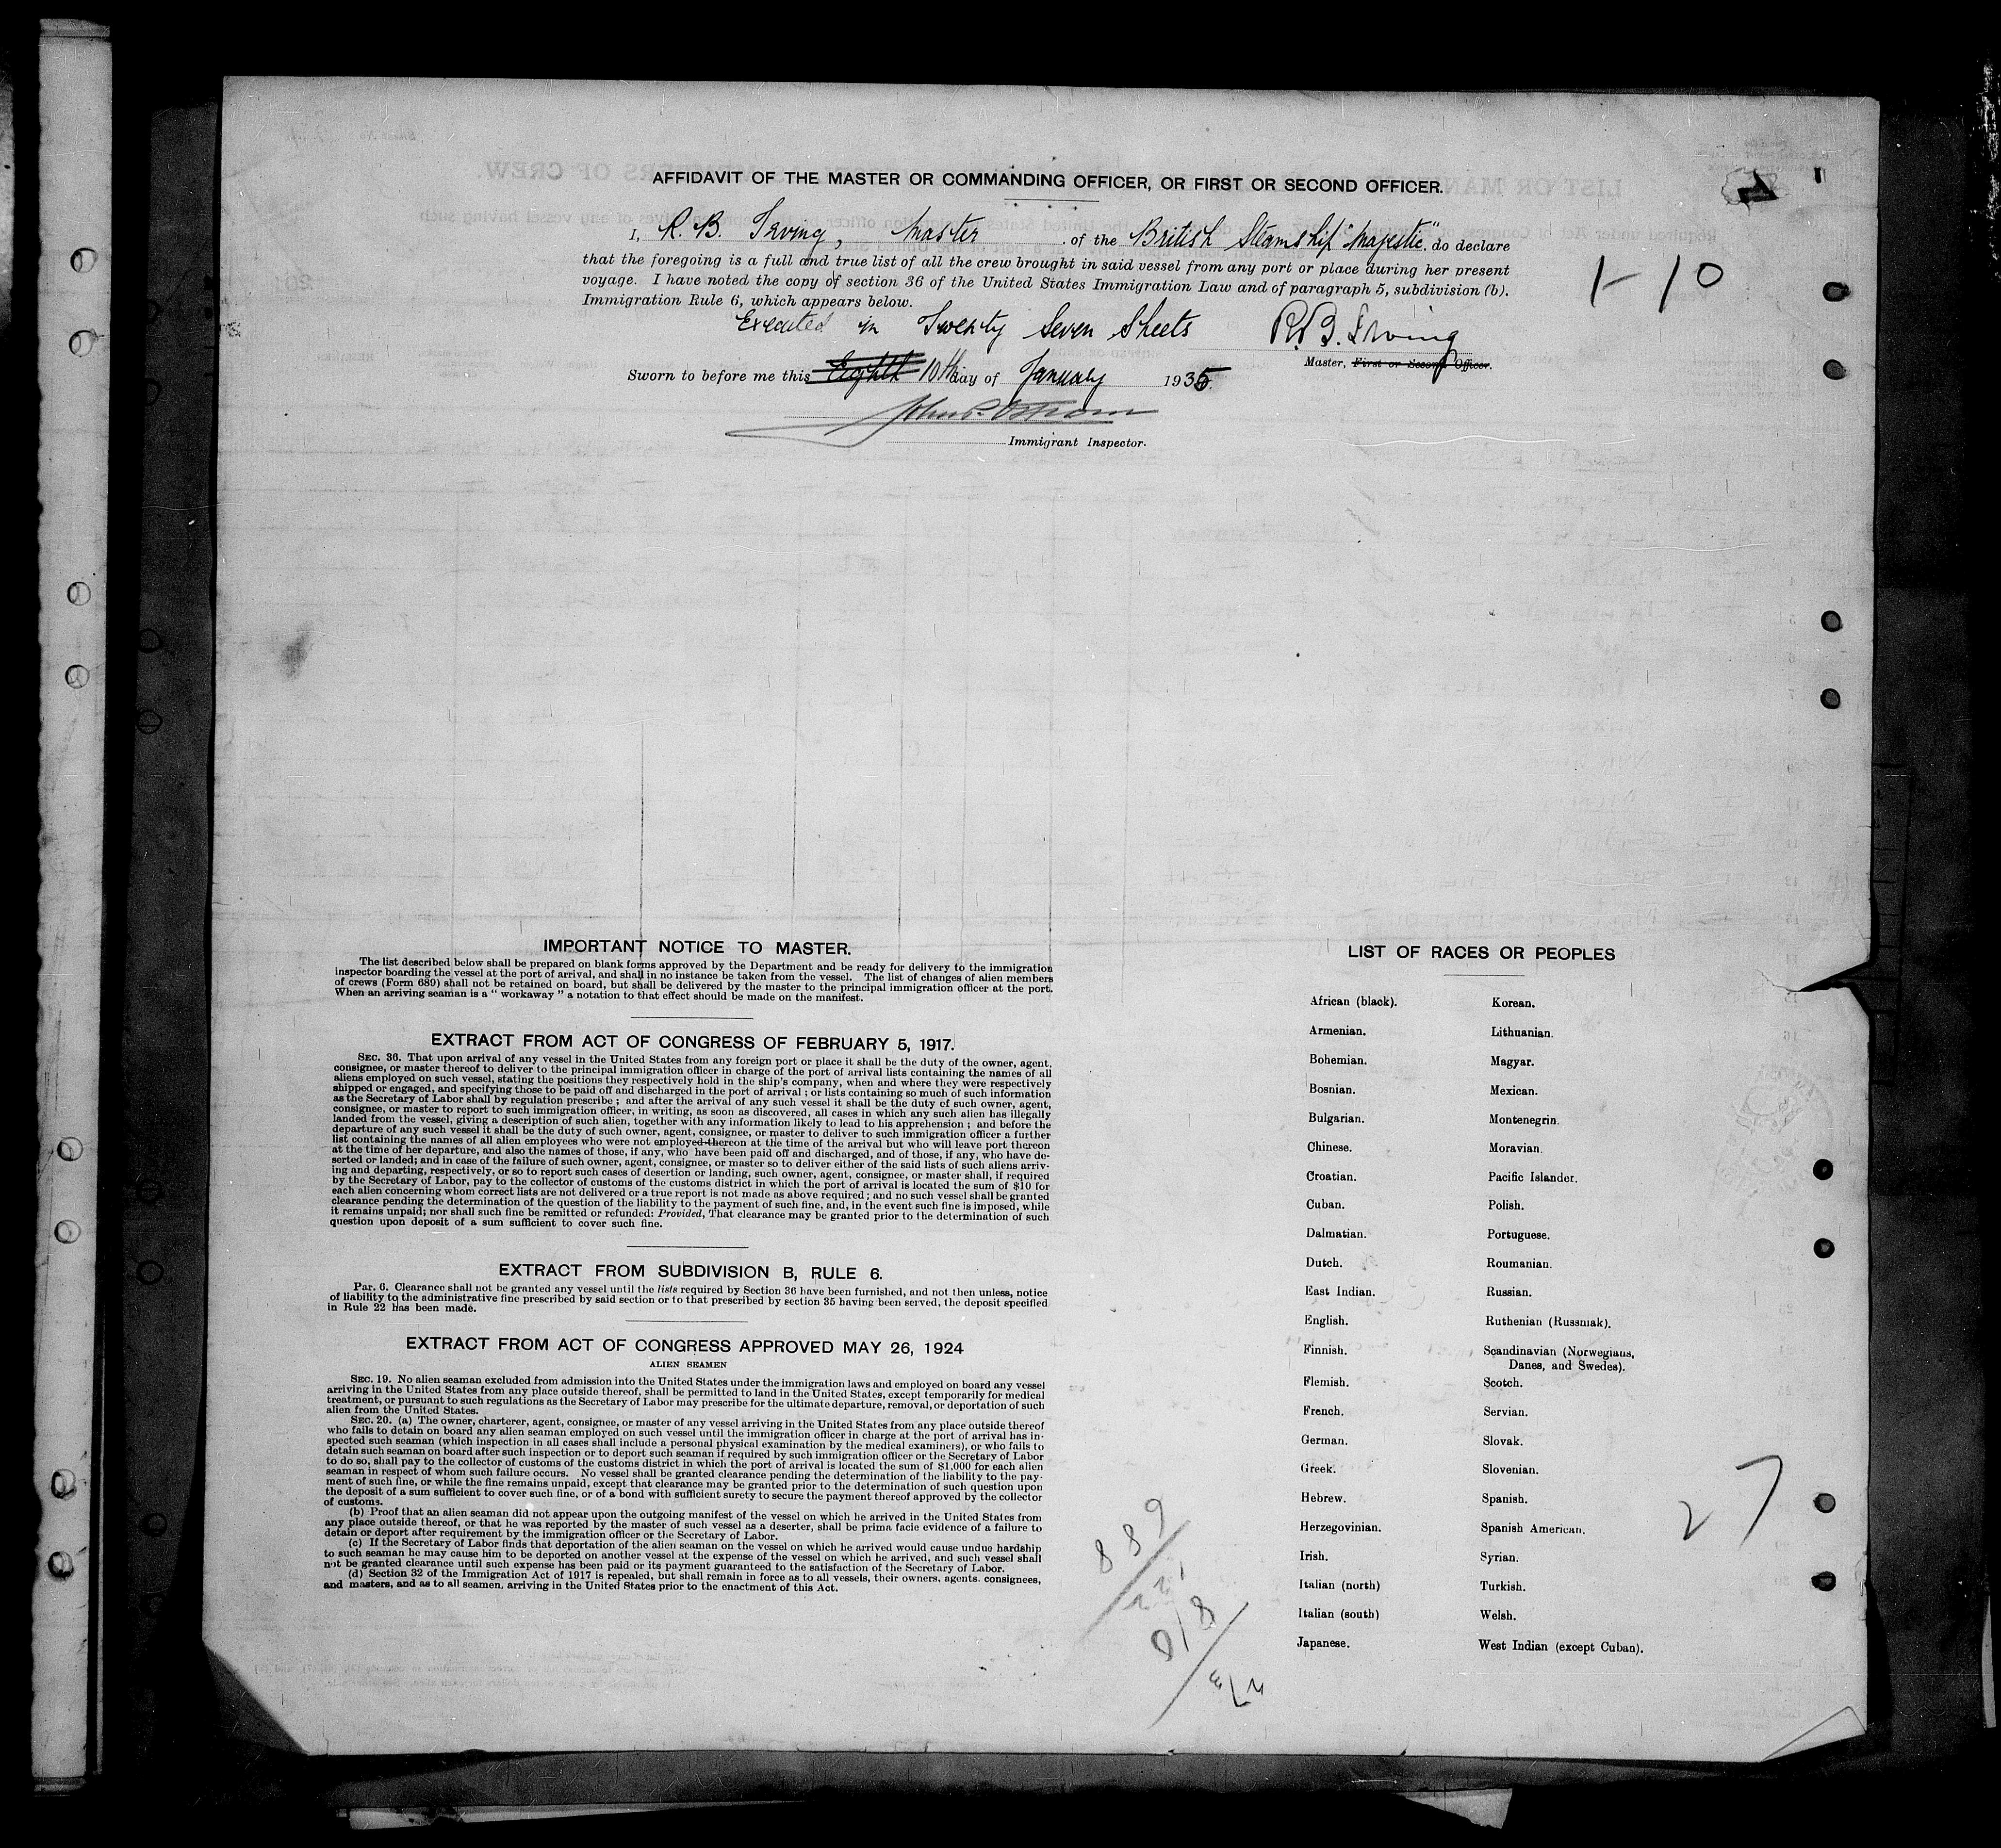 AFFIDAVIT OF THE MASTER OR COMMANDING OFFICER, OR FIRST OR SECOND OFFICER.
I, R. B. Irving, Master of the British Steamship "Majestic" do declare
that the foregoing is a full and true list of all the crew brought in said vessel from any port or place during her present
voyage. I have noted the copy of section 36 of the United States Immigration Law and of paragraph 5, subdivision (b).
Immigration Rule 6, which appears below.
1-10
Executed in Twenty Seven Sheets R.B. Irving
Master, First or Second Officer.
Sworn to before me this Eighth 10th day of January 1935.
Immigrant Inspector.
IMPORTANT NOTICE TO MASTER.
The list described below shall be prepared on blank forms approved by the Department and be ready for delivery to the immigration
inspector boarding the vessel at the port of arrival, and shall in no instance be taken from the vessel. The list of changes of alien members
of crews (Form 689) shall not be retained on board, but shall be delivered by the master to the principal immigration officer at the port.
When an arriving seaman is a " workaway " a notation to that effect should be made on the manifest.
EXTRACT FROM ACT OF CONGRESS OF FEBRUARY 5, 1917.
SEC. 36. That upon arrival of any vessel in the United States from any foreign port or place it shall be the duty of the owner, agent,
consignee, or master thereof to deliver to the principal immigration officer in charge of the port of arrival lists containing the names of all
aliens employed on such vessel, stating the positions they respectively hold in the ship's company, when and where they were respectively
shipped or engaged, and specifying those to be paid off and discharged in the port of arrival ; or lists containing so much of such information
as the Secretary of Labor shall by regulation prescribe ; and after the arrival of any such vessel it shall be the duty of such owner, agent,
consignee, or master to report to such immigration officer, in writing, as soon as discovered, all cases in which any such alien has illegally
landed from the vessel, giving a description of such alien, together with any information likely to lead to his apprehension ; and before the
departure of any such vessel it shall be the duty of such owner, agent, consignee, or master to deliver to such immigration officer a further
list containing the names of all alien employees who were not employed thereon at the time of the arrival but who will leave port thereon
at the time of her departure, and also the names of those, if any, who have been paid off and discharged, and of those, if any, who have de-
serted or landed; and in case of the failure of such owner, agent, consignee, or master so to deliver either of the said lists of such aliens arriv-
ing and departing, respectively, or so to report such cases of desertion or landing, such owner, agent, consignee, or master shall, if required
by the Secretary of Labor, pay to the collector of customs of the customs district in which the port of arrival is located the sum of $10 for
each alien concerning whom correct lists are not delivered or a true report is not made as above required ; and no such vessel shall be granted
clearance pending the determination of the question of the liability to the payment of such fine, and, in the event such fine is imposed, while
it remains unpaid; nor shall such fine be remitted or refunded: Provided, That clearance may be granted prior to the determination of such
question upon deposit of a sum sufficient to cover such fine.
EXTRACT FROM SUBDIVISION B, RULE 6.
Par. 6. Clearance shall not be granted any vessel until the lists required by Section 36 have been furnished, and not then unless, notice
of liability to the administrative fine prescribed by said section or to that prescribed by section 35 having been served, the deposit specified
in Rule 22 has been made.
EXTRACT FROM ACT OF CONGRESS APPROVED MAY 26, 1924
ALIEN SEAMEN
SEC. 19. No alien seaman excluded from admission into the United States under the immigration laws and employed on board any vessel
arriving in the United States from any place outside thereof, shall be permitted to land in the United States, except temporarily for medical
treatment, or pursuant to such regulations as the Secretary of Labor may prescribe for the ultimate departure, removal, or deportation of such
alien from the United States.
SEC. 20. (a) The owner, charterer, agent, consignee, or master of any vessel arriving in the United States from any place outside thereof
who fails to detain on board any alien seaman employed on such vessel until the immigration officer in charge at the port of arrival has in-
spected such seaman (which inspection in all cases shall include a personal physical examination by the medical examiners), or who fails to
detain such seaman on board after such inspection or to deport such seaman if required by such immigration officer or the Secretary of Labor
to do so, shall pay to the collector of customs of the customs district in which the port of arrival is located the sum of $1,000 for each alien
seaman in respect of whom such failure occurs. No vessel shall be granted clearance pending the determination of the liability to the pay-
ment of such fine, or while the fine remains unpaid, except that clearance may be granted prior to the determination of such question upon
the deposit of a sum sufficient to cover such fine, or of a bond with sufficient surety to secure the payment thereof approved by the collector
of customs.
(b) Proof that an alien seaman did not appear upon the outgoing manifest of the vessel on which he arrived in the United States from
any place outside thereof, or that he was reported by the master of such vessel as a deserter, shall be prima facie evidence of a failure to
detain or deport after requirement by the immigration officer or the Secretary of Labor.
(c) If the Secretary of Labor finds that deportation of the alien seaman on the vessel on which he arrived would cause undue hardship
to such seaman he may cause him to be deported on another vessel at the expense of the vessel on which he arrived, and such vessel shall
not be granted clearance until such expense has been paid or its payment guaranteed to the satisfaction of the Secretary of Labor.
(d) Section 32 of the Immigration Act of 1917 is repealed, but shall remain in force as to all vessels, their owners, agents, consignees,
and masters, and as to all seamen, arriving in the United States prior to the enactment of this Act.
LIST OF RACES OR PEOPLES
African (black). Korean.
Armenian. Lithuanian.
Bohemian. Magyar.
Bosnian. Mexican.
Bulgarian. Montenegrin.
Chinese. Moravian.
Croatian. Pacific Islander.
Cuban. Polish.
Dalmatian. Portuguese.
Dutch. Roumanian.
East Indian. Russian.
English. Ruthenian (Russniak).
Finnish. Scandinavian (Norwegians,
Danes, and Swedes).
Flemish. Scotch.
French. Servian.
German. Slovak.
Greek. Slovenian.
Hebrew. Spanish.
Herzegovinian. Spanish American.
Irish. Syrian.
Italian (north) Turkish.
Italian (south) Welsh.
Japanese. West Indian (except Cuban).
27
889
810